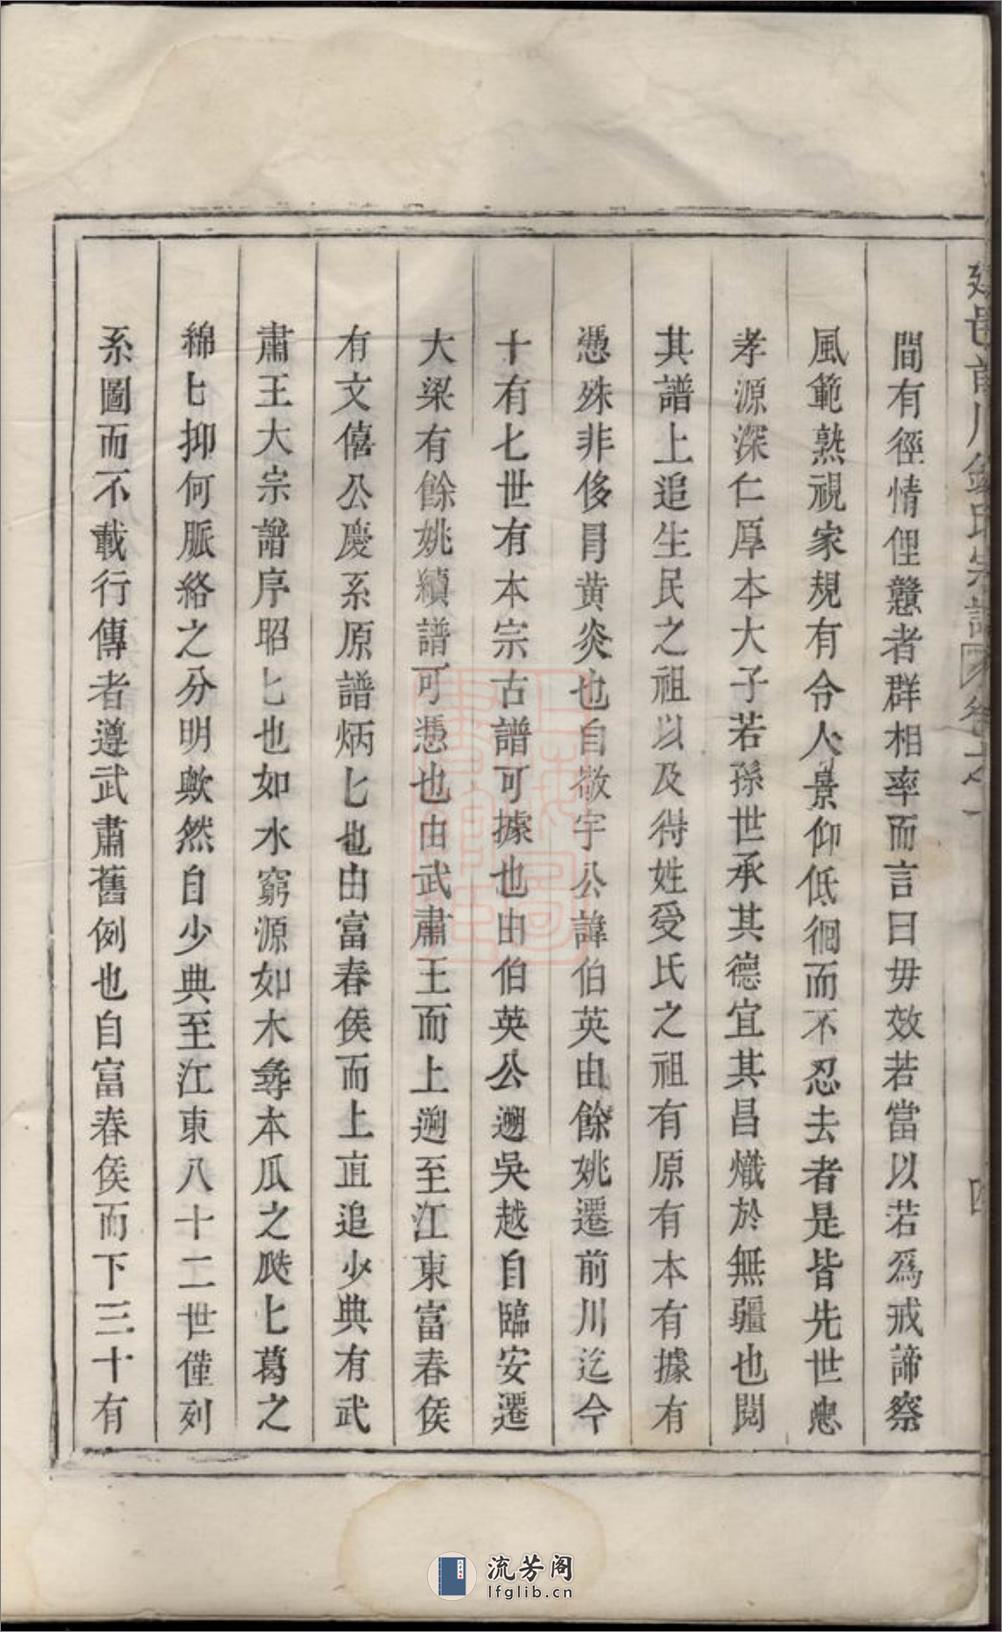 間有徑情俚戅者群相率而言曰毋效若當以若爲戒諦察
風範熟視家規有令人景仰低徊而不忍去者是皆先世忠
孝源深仁厚本大子若孫世承其德宜其昌熾於無疆也閱
其譜上追生民之祖以及得姓受氏之祖有原有本有據有
憑殊非侈冐黄炎也自敬宇公諱伯英由餘姚遷前川迄今
十有七世有本宗古譜可據也由伯英公遡吳越自臨安遷
大梁有餘姚續譜可憑也由武肅王而上遡至江東富春侯
有文僖公慶系原譜炳匕也由富春侯而上直追少典有武
肅王大宗譜序昭匕也如水窮源如木尋本瓜之瓞匕葛之
綿匕抑何脈絡之分明歟然自少典至江東八十二世僅列
系圖而不載行傳者遵武肅舊例也自富春侯而下三十有
氏宗譜 卷之一
四
流芳阁
lfglib.cn